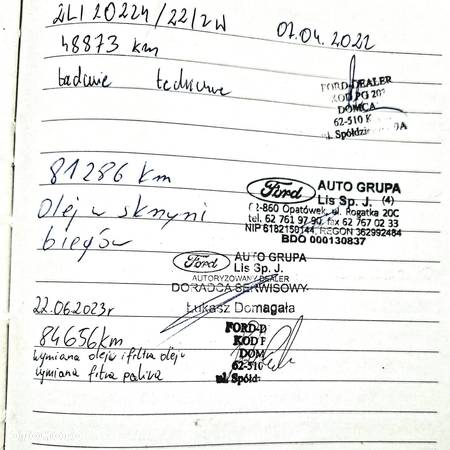 07.04.2022
48873 km
badanie techniczne
FORD-DEALER
KOD PG 207
DOMCA
62-510 K
ul. Spółdzie
81286 km
olej w skrzyni
biegów
Ford AUTO GRUPA
Lis Sp. J. (4)
-860 Opatówek, ul. Rogatka 20C
tel. 62 761 97 90, fax 62 767 02 33
NIP 6182150144, REGON 362992484
BDO 000130837
Ford AUTO GRUPA
Lis Sp. J.
AUTORYZOWANY DEALER
DORADCA SERWISOWY
Łukasz Domagała
22.06.2023r
84656km
wymiana oleju i filtra oleju
wymiana filtra paliwa
FORD-D
KOD P
DOM
62-510
ul. Spółd